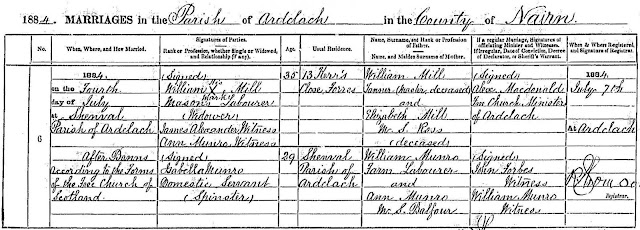 1884. MARRIAGES in the Parish of Ardclach in the County of Nairn.
No.
When, Where, and How Married.
Signatures of Parties.
Rank or Profession, whether Single or Widowed, and Relationship (if any).
Age.
Usual Residence.
Name, Surname, and Rank or Profession of Father.
Name, and Maiden Surname of Mother.
If a regular Marriage, Signatures of officiating Minister and Witnesses.
If irregular, Date of Conviction, Decree of Declarator, or Sheriff's Warrant.
When & Where Registered, and Signature of Registrar.
6
1884.
on the Fourth
day of July
at Shenval
Parish of Ardclach
After Banns
according to the Forms
of the Free Church of
Scotland
(Signed)
William X Mill
his
Mark
Mason's Labourer
(Widower)
James Alexander, Witness
Ann Munro, Witness
(Signed)
Isabella Munro
Domestic Servant
(Spinster)
35
29
13 Kerr's
Close, Forres
Shenval
Parish of
Ardclach
William Mill
Tanner (Master, deceased)
and
Elizabeth Mill
M.S. Ross
(deceased)
William Munro
Farm Labourer
and
Ann Munro
M.S. Balfour
(Signed)
Macdonald
Free Church Minister
of Ardclach
(Signed)
John Forbes
Witness
William Munro
Witness
1884.
July 7th
at Ardclach
Registrar.